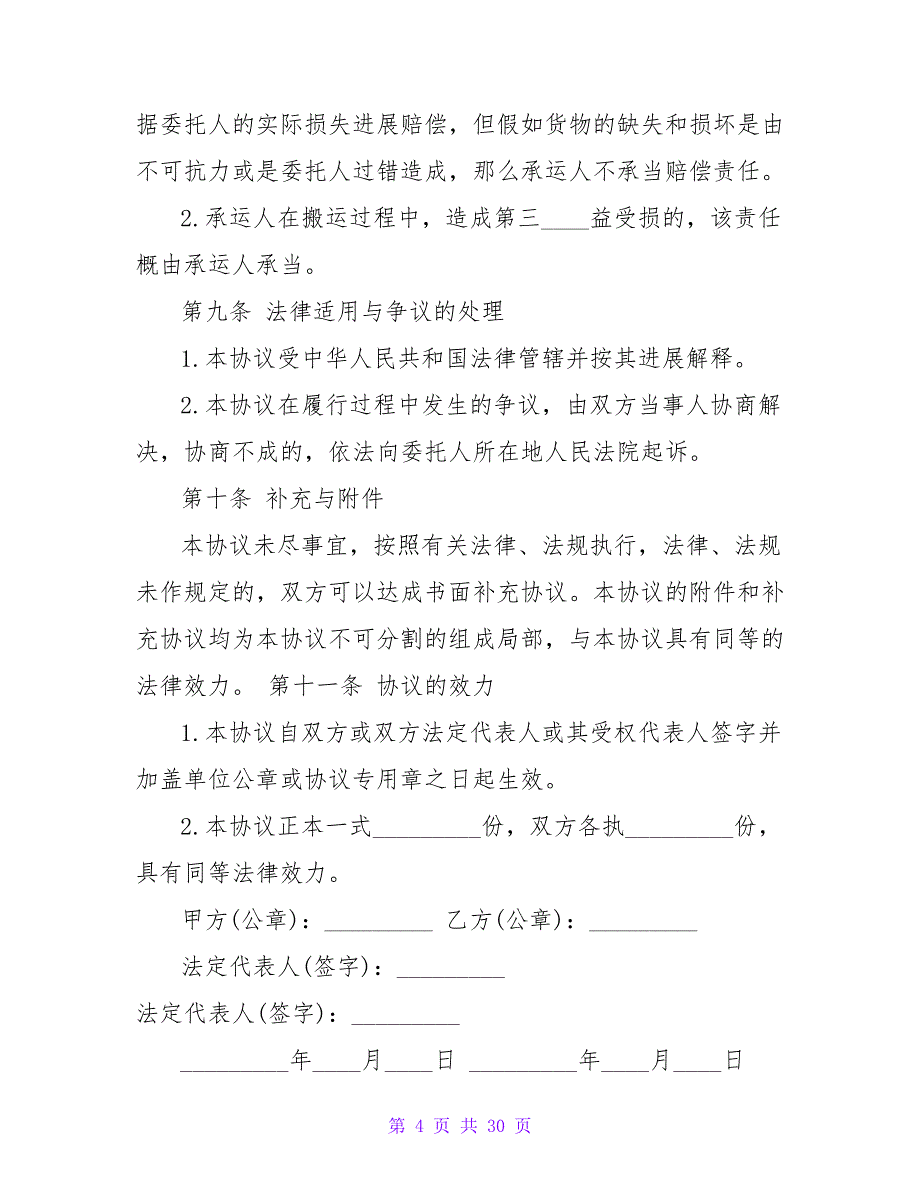 据委托人的实际损失进展赔偿，但假如货物的缺失和损坏是由
不可抗力或是委托人过错造成，那么承运人不承当赔偿责任。
2.承运人在搬运过程中，造成第三____益受损的，该责任
概由承运人承当。
第九条 法律适用与争议的处理
1.本协议受中华人民共和国法律管辖并按其进展解释。
2.本协议在履行过程中发生的争议，由双方当事人协商解
决，协商不成的，依法向委托人所在地人民法院起诉。
第十条 补充与附件
本协议未尽事宜，按照有关法律、法规执行，法律、法规
未作规定的，双方可以达成书面补充协议。本协议的附件和补
充协议均为本协议不可分割的组成局部，与本协议具有同等的
法律效力。 第十一条 协议的效力
1.本协议自双方或双方法定代表人或其受权代表人签字并
加盖单位公章或协议专用章之日起生效。
2.本协议正本一式_________份，双方各执_________份，
具有同等法律效力。
甲方(公章)：_________ 乙方(公章)：_________
法定代表人(签字)：_________
法定代表人(签字)：_________
_________年____月____日 _________年____月____日
第 4 页 共 30 页